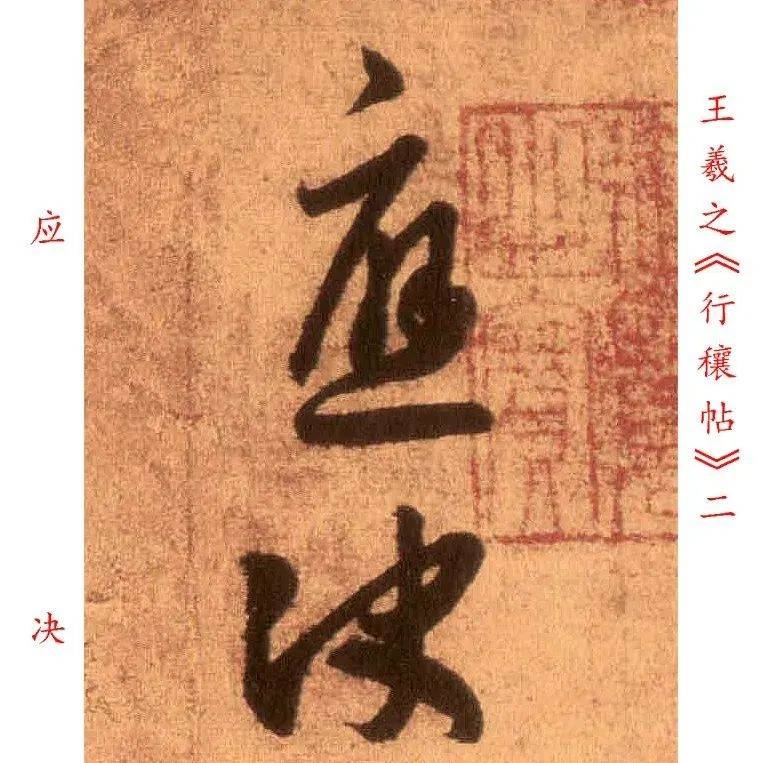 王羲之《行穰帖》二
應決
应
决